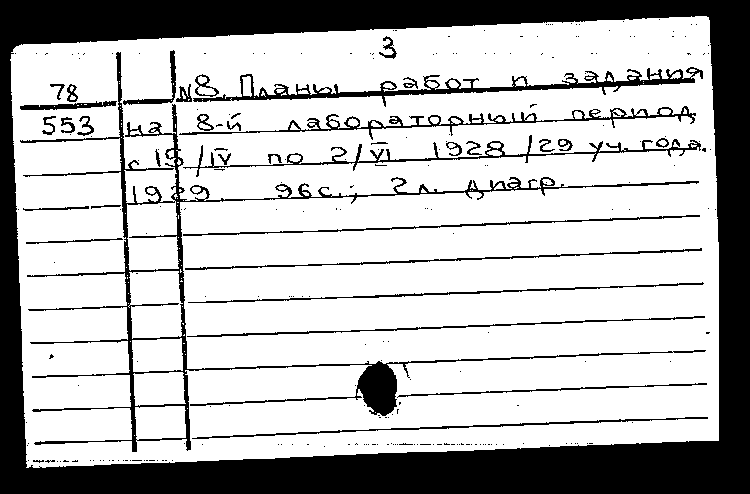 3
78 N8. Планы работ и задания
553 на 8-й лабораторный период
с 15/IV по 2/VI 1928/29 уч. года.
1929 96с.; 2л. диагр.